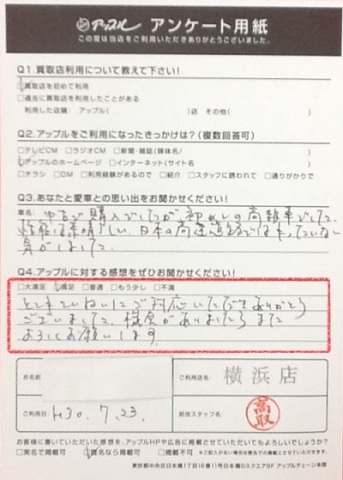 アップル アンケート用紙
この度は当店をご利用いただきありがとうございました。
Q1.買取店利用について教えて下さい!
□買取を初めて利用
□過去に買取を利用したことがある
利用した店舗：アップル( )店 その他( )
Q2.アップルをご利用になったきっかけは?(複数回答可)
□テレビCM □ラジオCM □新聞・雑誌(媒体名/ )
□アップルのホームページ □インターネット(サイト名 )
□チラシ □DM □利用経験があるので □紹介 □スタッフに誘われて □通りがかりで
Q3.あなたと愛車との思い出をお聞かせください!
車名: 中古で購入でしたが、初めての高級車でした。
性能は素晴しい、日本の高速道路では
気がしました。
Q4.アップルに対する感想をぜひお聞かせください!
□大満足 □満足 □普通 □もう少し □不満
とてもていねいにご対応いただきありがとう
ございました。機会がありましたらまた
よろしくお願いします。
お名前
ご利用店名: 横浜店
ご利用日 H30.7.23.
担当スタッフ名: 高取
お客様に書いていただいた感想を、アップルHPや広告に掲載させていただいてもよろしいでしょうか?
□実名で掲載可 □匿名なら掲載可 □掲載不可
東京都中央区日本橋1丁目16番11号日本橋Dスクエア8F アップルチェーン本部